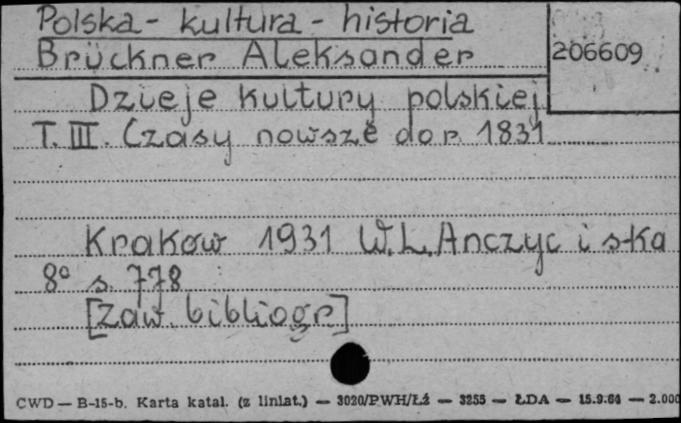 Polska - kultura - historia
Brückner Aleksander
206609
Dzieje kultury polskiej
T. III. Czasy nowsze do r. 1831
Kraków 1931 W.L. Anczyc i s-ka
8° s. 778
[Zaw. bibliogr.]
CWD — B-15-b. Karta katal. (z liniat.) — 3020/PWH/Łź — 3255 — ŁDA — 15.9.64 — 2.000